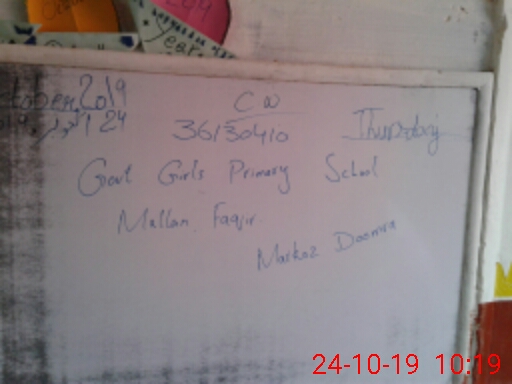 C W
2019
24
36130410
Thursday
Govt Girls Primary School
Mallan Faqir
Markaz Doomra
24-10-19 10:19